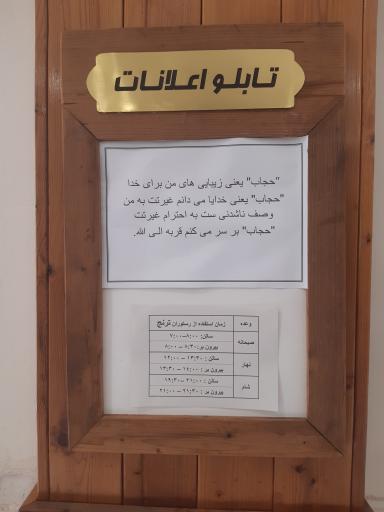 تابلو اعلانات
"حجاب" یعنی زیبایی های من برای خدا
"حجاب" یعنی خدایا می دانم غیرتت به من
وصف ناشدنی ست به احترام غیرتت
"حجاب" بر سر می کنم قربه الی الله.
وعده زمان استفاده از رستوران ترنج
صبحانه
سالن: ۸:۰۰-۷:۰۰
بیرون بر: ۸:۳۰ - ۸:۰۰
نهار
سالن : ۱۳:۳۰ - ۱۲:۰۰
بیرون بر : ۱۴:۰۰ - ۱۳:۳۰
شام
سالن : ۲۱:۰۰ - ۱۹:۳۰
بیرون بر : ۲۱:۳۰ - ۲۱:۰۰